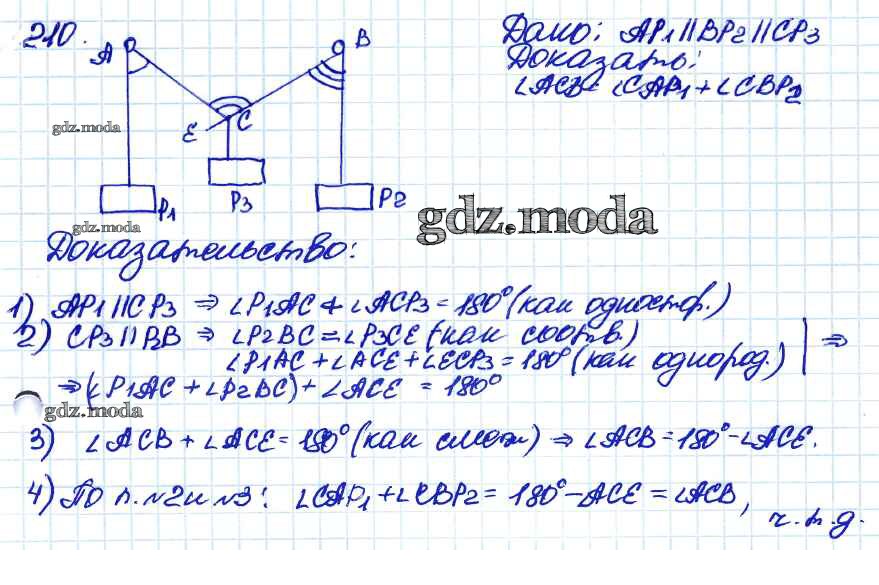 210.
A
B
E
C
P1
P3
P2
Дано: AP1 || BP2 || CP3
Доказать:
∠ACB = ∠CAP1 + ∠CBP2
gdz.moda
gdz.moda
gdz.moda
Доказательство:
1) AP1 || CP3 ⇒ ∠P1AC + ∠ACP3 = 180° (как одностор.)
2) CP3 || P2B ⇒ ∠P2BC = ∠P3CE (как соотв.)
∠P1AC + ∠ACE + ∠ECP3 = 180° (как однород.) | ⇒
⇒ (∠P1AC + ∠P2BC) + ∠ACE = 180°
gdz.moda
3) ∠ACB + ∠ACE = 180° (как смеж) ⇒ ∠ACB = 180° - ∠ACE.
4) По п. №2 и №3: ∠CAP1 + ∠CBP2 = 180° - ACE = ∠ACB,
ч.т.д.